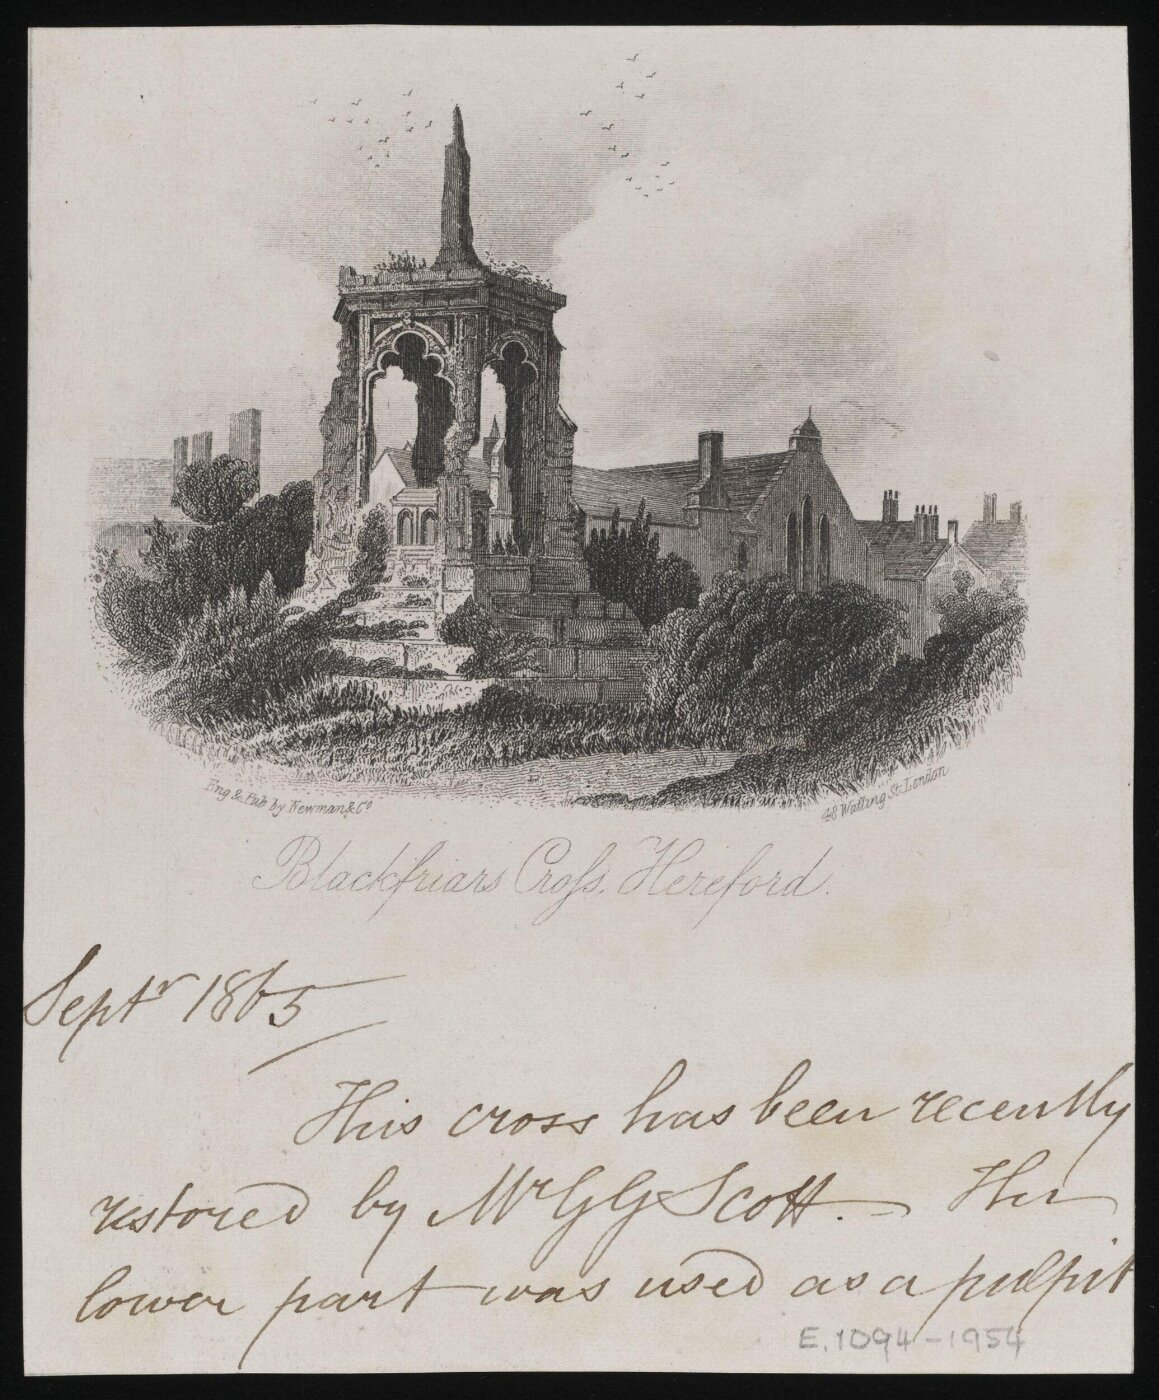 Eng & Pub by Newman & Co.
48 Watling St. London
Blackfriars Cross. Hereford.
Septr 1865
This cross has been recently
restored by Mr G G Scott. – The
lower part was used as a pulpit
E.1094-1954